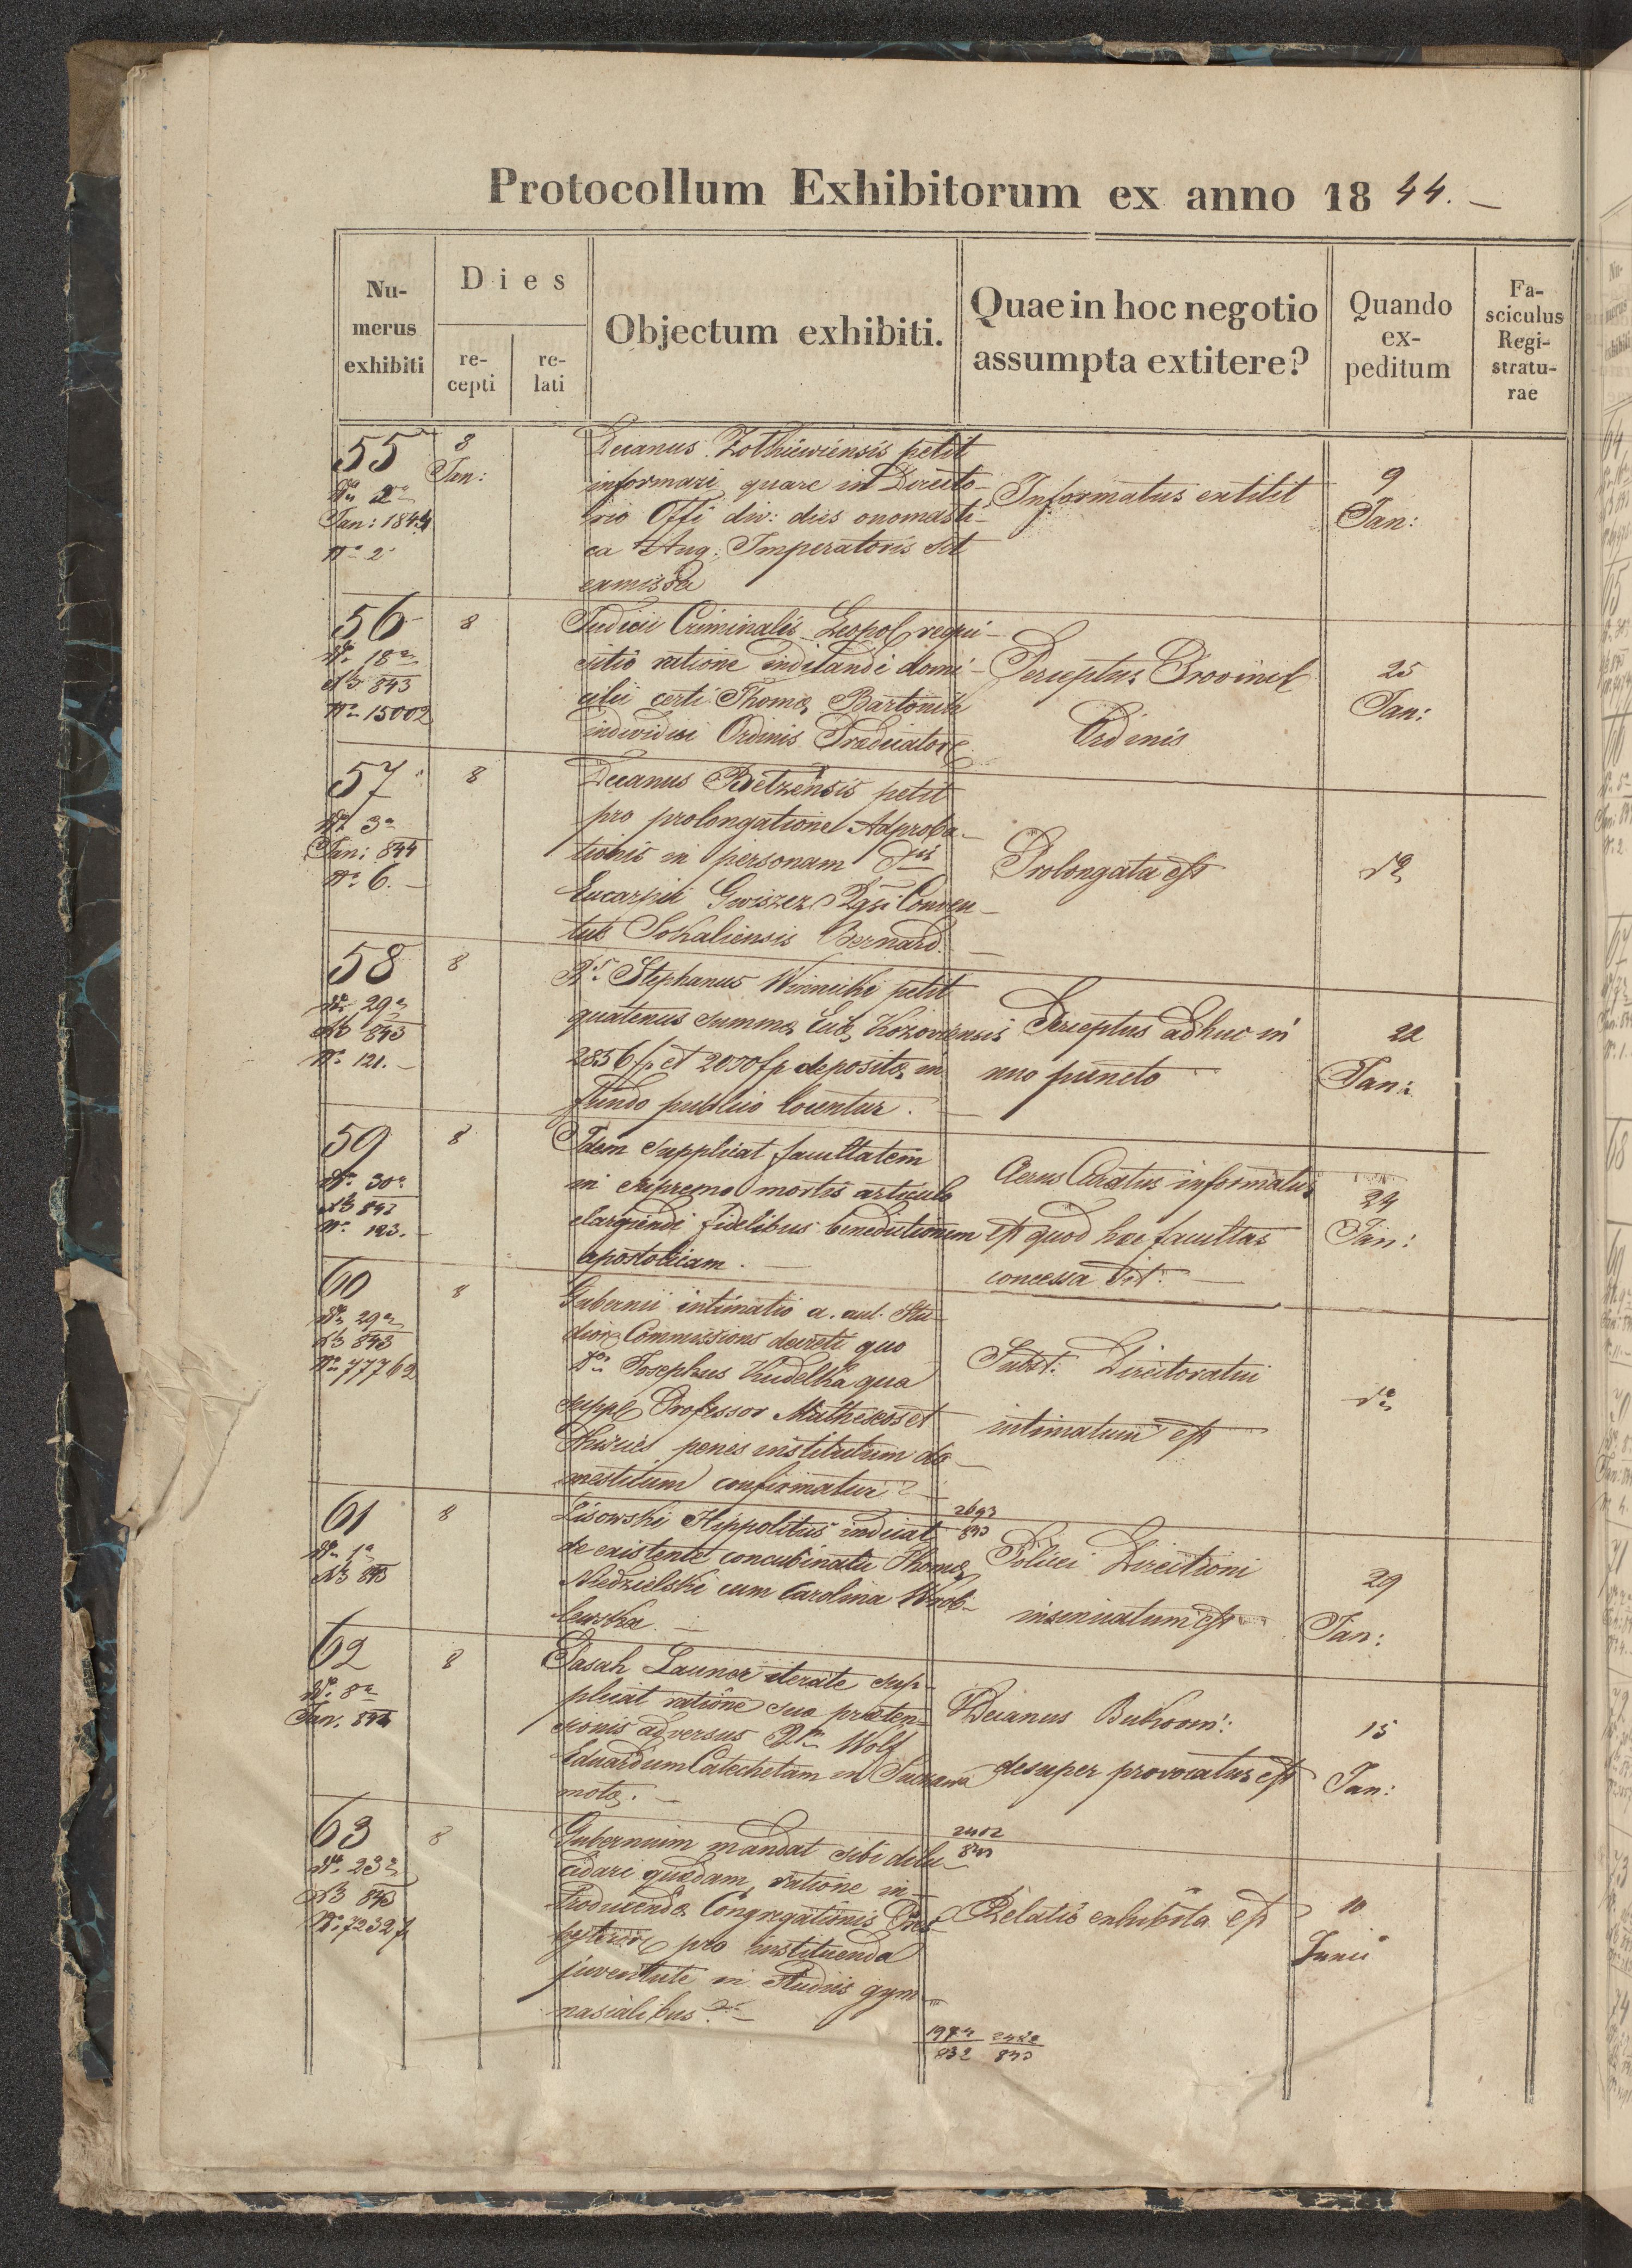 Protocollum Exhibitorum ex anno 18 44. —
Nu-
merus
exhibiti
Dies
re-
cepti
re-
lati
Objectum exhibiti.
Quae in hoc negotio
assumpta extitere?
Quando
ex-
peditum
Fa-
sciculus
Regi-
stratu-
rae
55
Jan: 1844
N° 2
8
Jan:
Decanus Zolkiewiensis petit
informari quare in Directo-
rio Offi div: dies onomasti-
ca Aug. Imperatoris sit
exmissa
Informatus extitit
9
Jan:
56
18a
843
N° 15002
8
Judicii Criminalis Leopol requi-
sitio ratione indicandi domi-
cilii certi Thomae Bartonik
individui Ordinis Praedicator
Perceptus Provincl
Ordinis
25
Jan:
57
3a
Jan: 844
N° 6. —
8
Decanus Beltzensis petit
pro prolongatione Adproba-
tionis in personam
Eucarpii Conven-
tus Sokaliensis Bernard. —
Prolongata est
do
58
29a
843
N° 121. —
8
Stephanus Winnicki petit
quatenus summae Kozoviensis
2856 f. et 2050 f. depositae in
fundo publico locentur. —
Perceptus adhuc in
uno puncto
22
Jan:
59
30a
843
N° 123. —
8
Idem supplicat facultatem
in supremo mortis articulo
elargiendi fidelibus benedictionem
apostolicam. —
Clerus Curatus informatus
est quod hac facultas
concessa sit. —
24
Jan:
60
29a
843
N° 77762
8
Gubernii intimatio a. aul. Stu-
dior Commissions decreti quo
Josephus Kudelka qua
suppl Professor Matheseos et
penes institutum do-
mesticum confirmatur
Subst: Directoratui
intimatum est
do
61
1a
843
8
Lisowski Hippolitus indicat
de existente concubinatu Thomae
Niedzielski cum Carolina Wrob-
lewska. —
2693
843
Policei Directioni
insinuatum est
29
Jan:
62
8a
Jan. 844
8
Sasah Launer iterate sup-
plicat ratione sua praeten-
sionis adversus Wolf
Eduardum Catechetam in Suczawa
motae. —
Decanus Bukowin:
desuper provocatus est
15
Jan:
63
23a
843
N° 72327
8
Gubernium mandat sibi dilu-
cidari quaedam, ratione in-
troducendae Congregationis Pres
byteror pro instituenda
juventute in studiis gym-
nasialibus —
2402
843
Relatio exhibita est
10
Junii
1984
832
2482
843